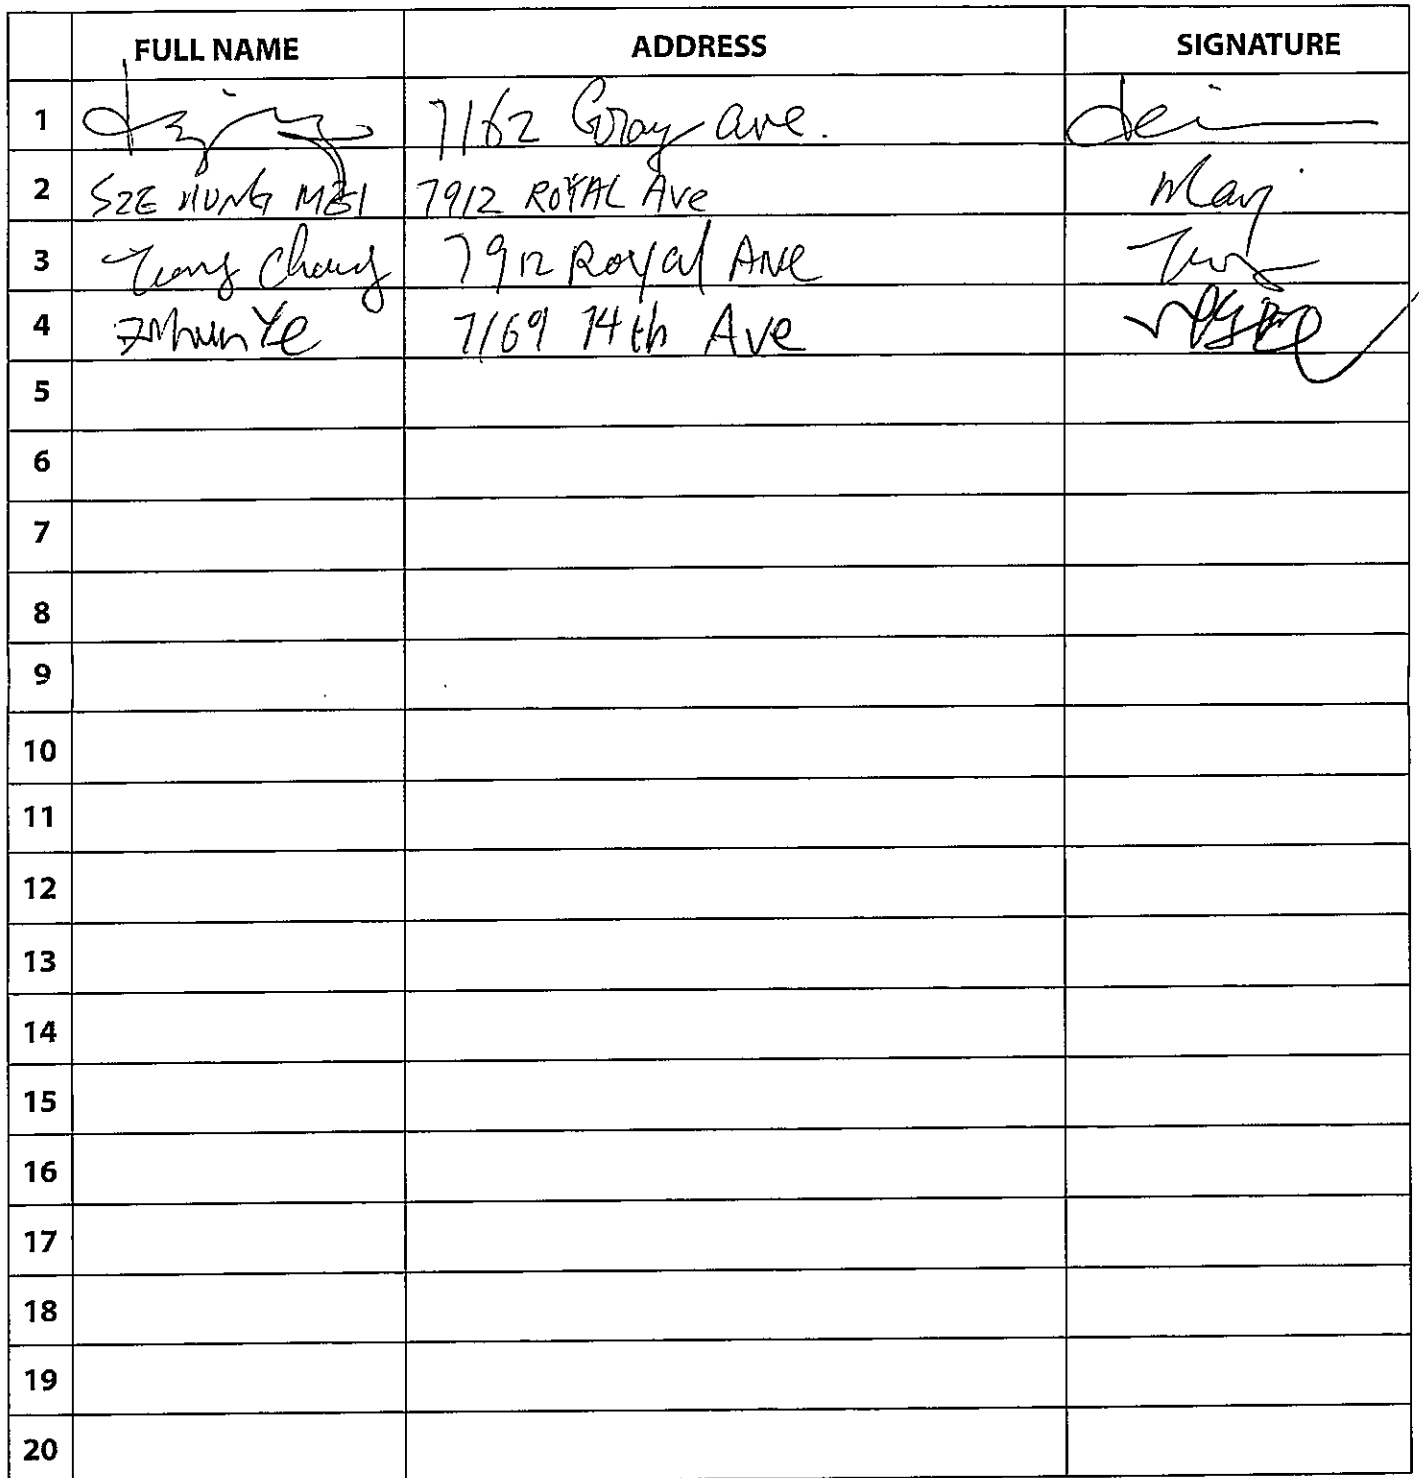 FULL NAME ADDRESS SIGNATURE
1 7162 Gray ave.
2 SZE HUNG MEI 7912 ROYAL Ave May
3 Tung Chang 7912 Royal Ave
4 Ye 7169 14th Ave
5
6
7
8
9
10
11
12
13
14
15
16
17
18
19
20